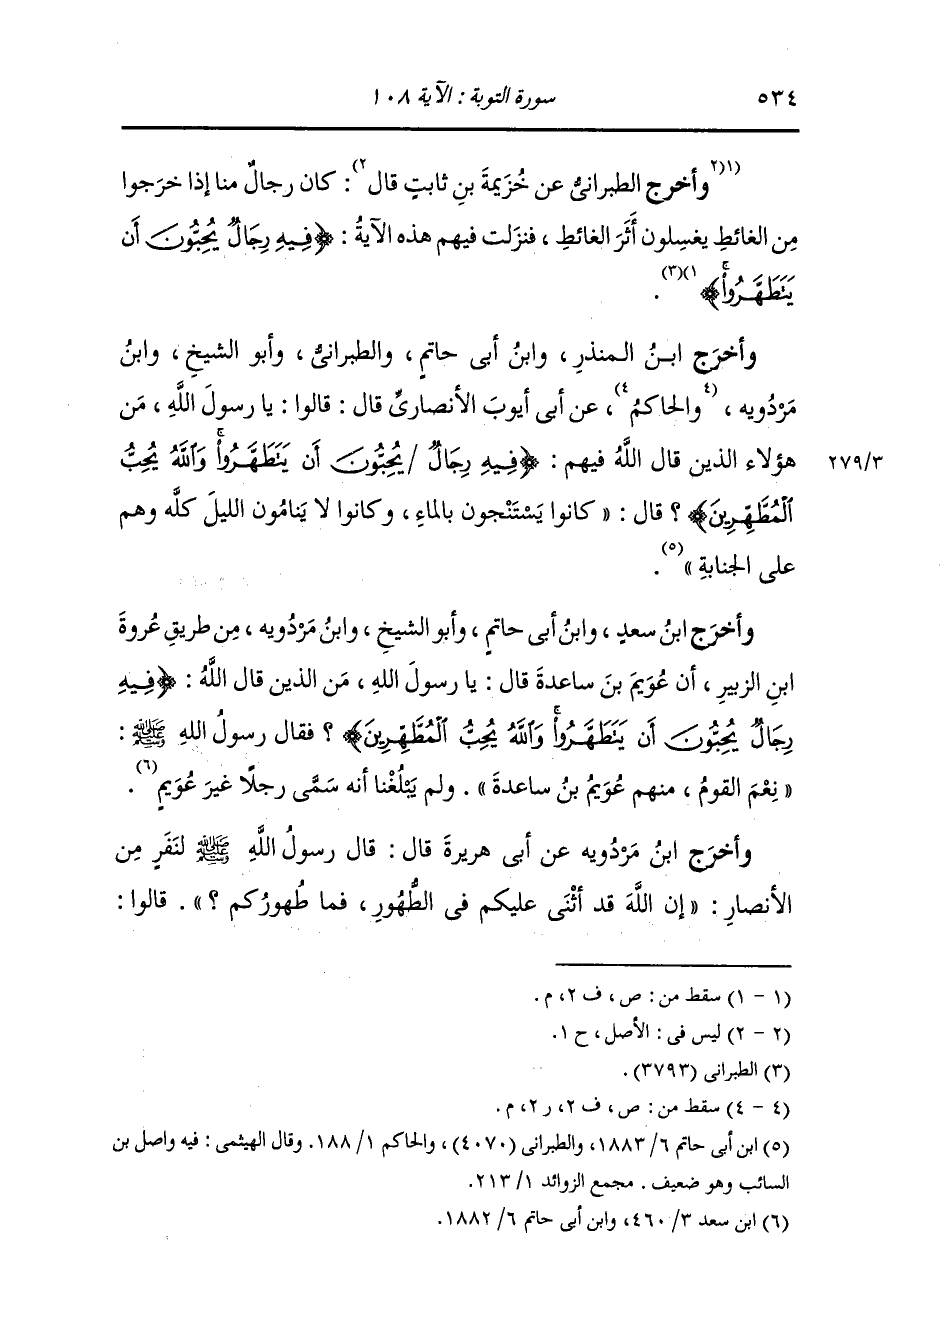 ٥٣٤ سورة التوبة : الآية ١٠٨
(١(٢وأخرج الطبرانىُّ عن خُزَيمةَ بنِ ثابتٍ قال٢) : كان رجالٌ منا إذا خرَجوا
مِن الغائطِ يغسِلون أثَرَ الغائطِ ، فنزَلت فيهم هذه الآيةُ : ﴿فِيهِ رِجَالٌ يُحِبُّونَ أَن
يَتَطَهَّرُواْۚ﴾١)(٣) .
وأخرَج ابنُ المنذرِ ، وابنُ أبى حاتمٍ ، والطبرانىُّ ، وأبو الشيخِ ، وابنُ
مَرْدُويه ، (٤والحاكمُ٤) ، عن أبى أيوبَ الأنصارىِّ قال : قالوا : يا رسولَ اللَّهِ ، مَن
هؤلاء الذين قال اللَّهُ فيهم : ﴿فِيهِ رِجَالٌ / يُحِبُّونَ أَن يَتَطَهَّرُواْۚ وَٱللَّهُ يُحِبُّ ٢٧٩/٣
ٱلْمُطَّهِّرِينَ﴾ ؟ قال : « كانوا يَسْتَنْجون بالماءِ ، وكانوا لا يَنامُون الليلَ كلَّه وهم
على الجنابةِ »(٥) .
وأخرَج ابنُ سعدٍ ، وابنُ أبى حاتمٍ ، وأبو الشيخِ ، وابنُ مَرْدُويه ، مِن طريقِ عُروةَ
ابنِ الزبيرِ ، أن عُوَيمَ بنَ ساعدةَ قال : يا رسولَ اللهِ ، مَن الذين قال اللَّهُ : ﴿فِيهِ
رِجَالٌ يُحِبُّونَ أَن يَتَطَهَّرُواْۚ وَٱللَّهُ يُحِبُّ ٱلْمُطَّهِّرِينَ﴾ ؟ فقال رسولُ اللهِ ﷺ :
« نِعْمَ القومُ ، منهم عُوَيمُ بنُ ساعدةَ » . ولم يَبْلُغْنا أنه سَمَّى رجلًا غيرَ عُوَيمٍ(٦) .
وأخرَج ابنُ مَرْدُويه عن أبى هريرةَ قال : قال رسولُ اللَّهِ ﷺ لنَفَرٍ مِن
الأنصارِ : « إن اللَّهَ قد أثْنَى عليكم فى الطُّهُورِ ، فما طُهورُكم ؟ » . قالوا :
(١ - ١) سقط من : ص ، ف ٢، م .
(٢ - ٢) ليس فى : الأصل ، ح ١.
(٣) الطبرانى (٣٧٩٣) .
(٤ - ٤) سقط من : ص ، ف ٢، ر ٢، م .
(٥) ابن أبى حاتم ٦/ ١٨٨٣، والطبرانى (٤٠٧٠) ، والحاكم ١/ ١٨٨. وقال الهيثمى : فيه واصل بن
السائب وهو ضعيف . مجمع الزوائد ١/ ٢١٣.
(٦) ابن سعد ٣/ ٤٦٠، وابن أبى حاتم ٦/ ١٨٨٢.